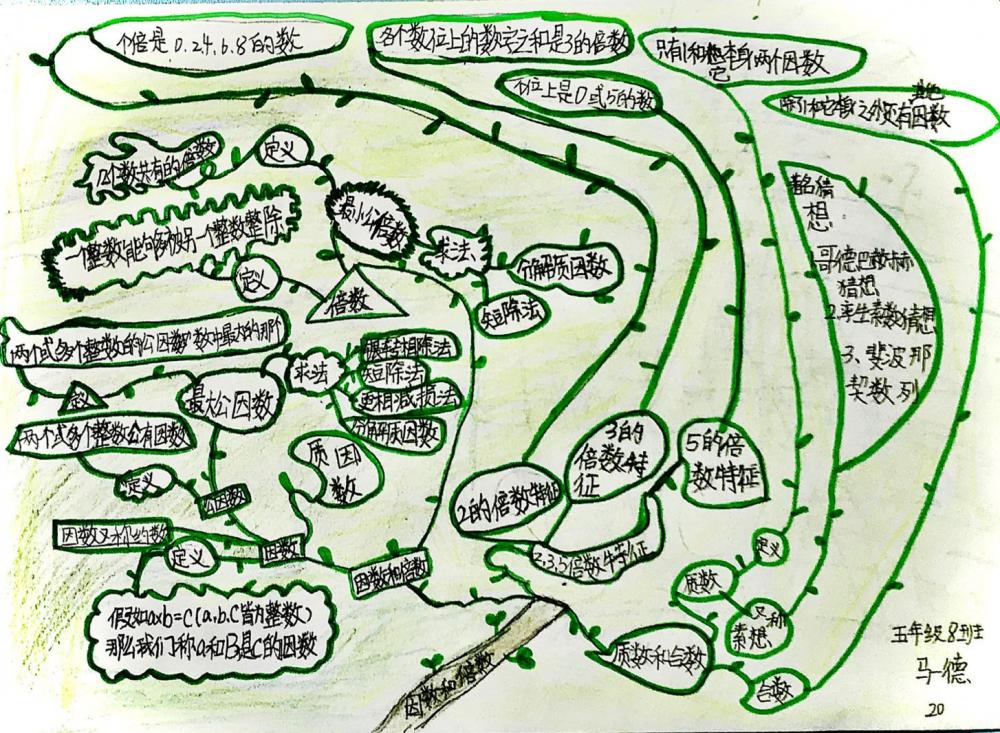 个倍是0.2.4.6.8的数
各个数位上的数字之和是3的倍数
只有1和它本身两个因数
个位上是0或5的数
其他
除了1和它本身之外还有因数
几个数共有的倍数
定义
最小公倍数
求法
分解质因数
短除法
一个整数能够被另一个整数整除
定义
倍数
著名猜
想:
哥德巴赫
猜想
2.孪生素数猜想
3、斐波那
契数列
两个或多个整数的公因数中最大的那个
定义
最大公因数
求法
辗转相除法
短除法
更相减损法
分解质因数
两个或多个整数公有因数
定义
公因数
质因
数
因数又称约数
定义
因数
假如a×b=c(a.b.c皆为整数)
那么我们称a和B是c的因数
因数和倍数
2的倍数特征
3的
倍数特
征
5的倍
数特征
2.3.5倍数特征
定义
质数
又称
素
质数和合数
合数
因数和倍数
五年级8班
马德
20